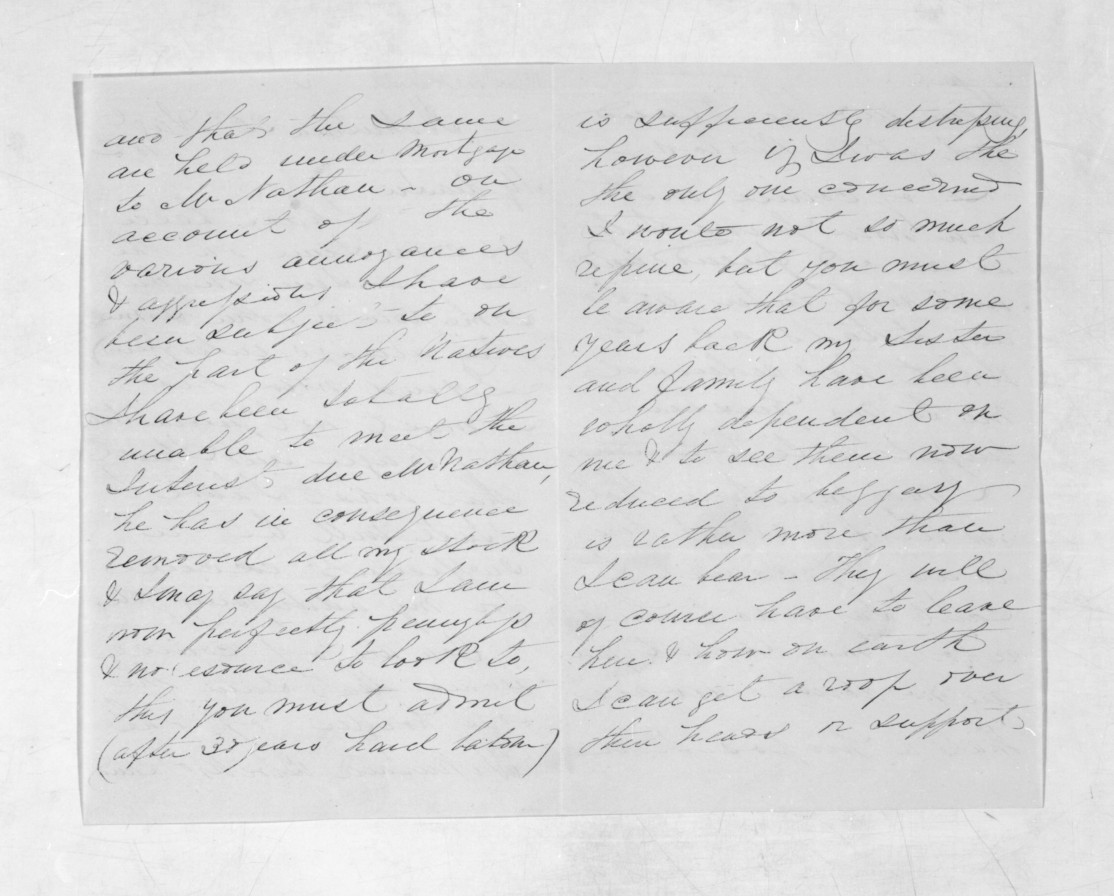 and that the same
are held under Mortgage
to Mr Nathan - on
account of the
various annoyances
& aggressions I have
been subject to on
the part of the Natives
I have been totally
unable to meet the
Interest due Mr Nathan,
he has in consequence
removed all my stock
& I may say that I am
now perfectly pennyless
& no resource to look to,
this you must admit
(after 30 years hard labour)
is sufficiently distressing
however if I was the
the only one concerned
I would not so much
repine, but you must
be aware that for some
years back my Sister
and family have been
wholly dependent on
me & to see them now
reduced to beggary
is rather more than
I can bear - They will
of course have to leave
here & how on earth
I can get a roof over
their heads or support